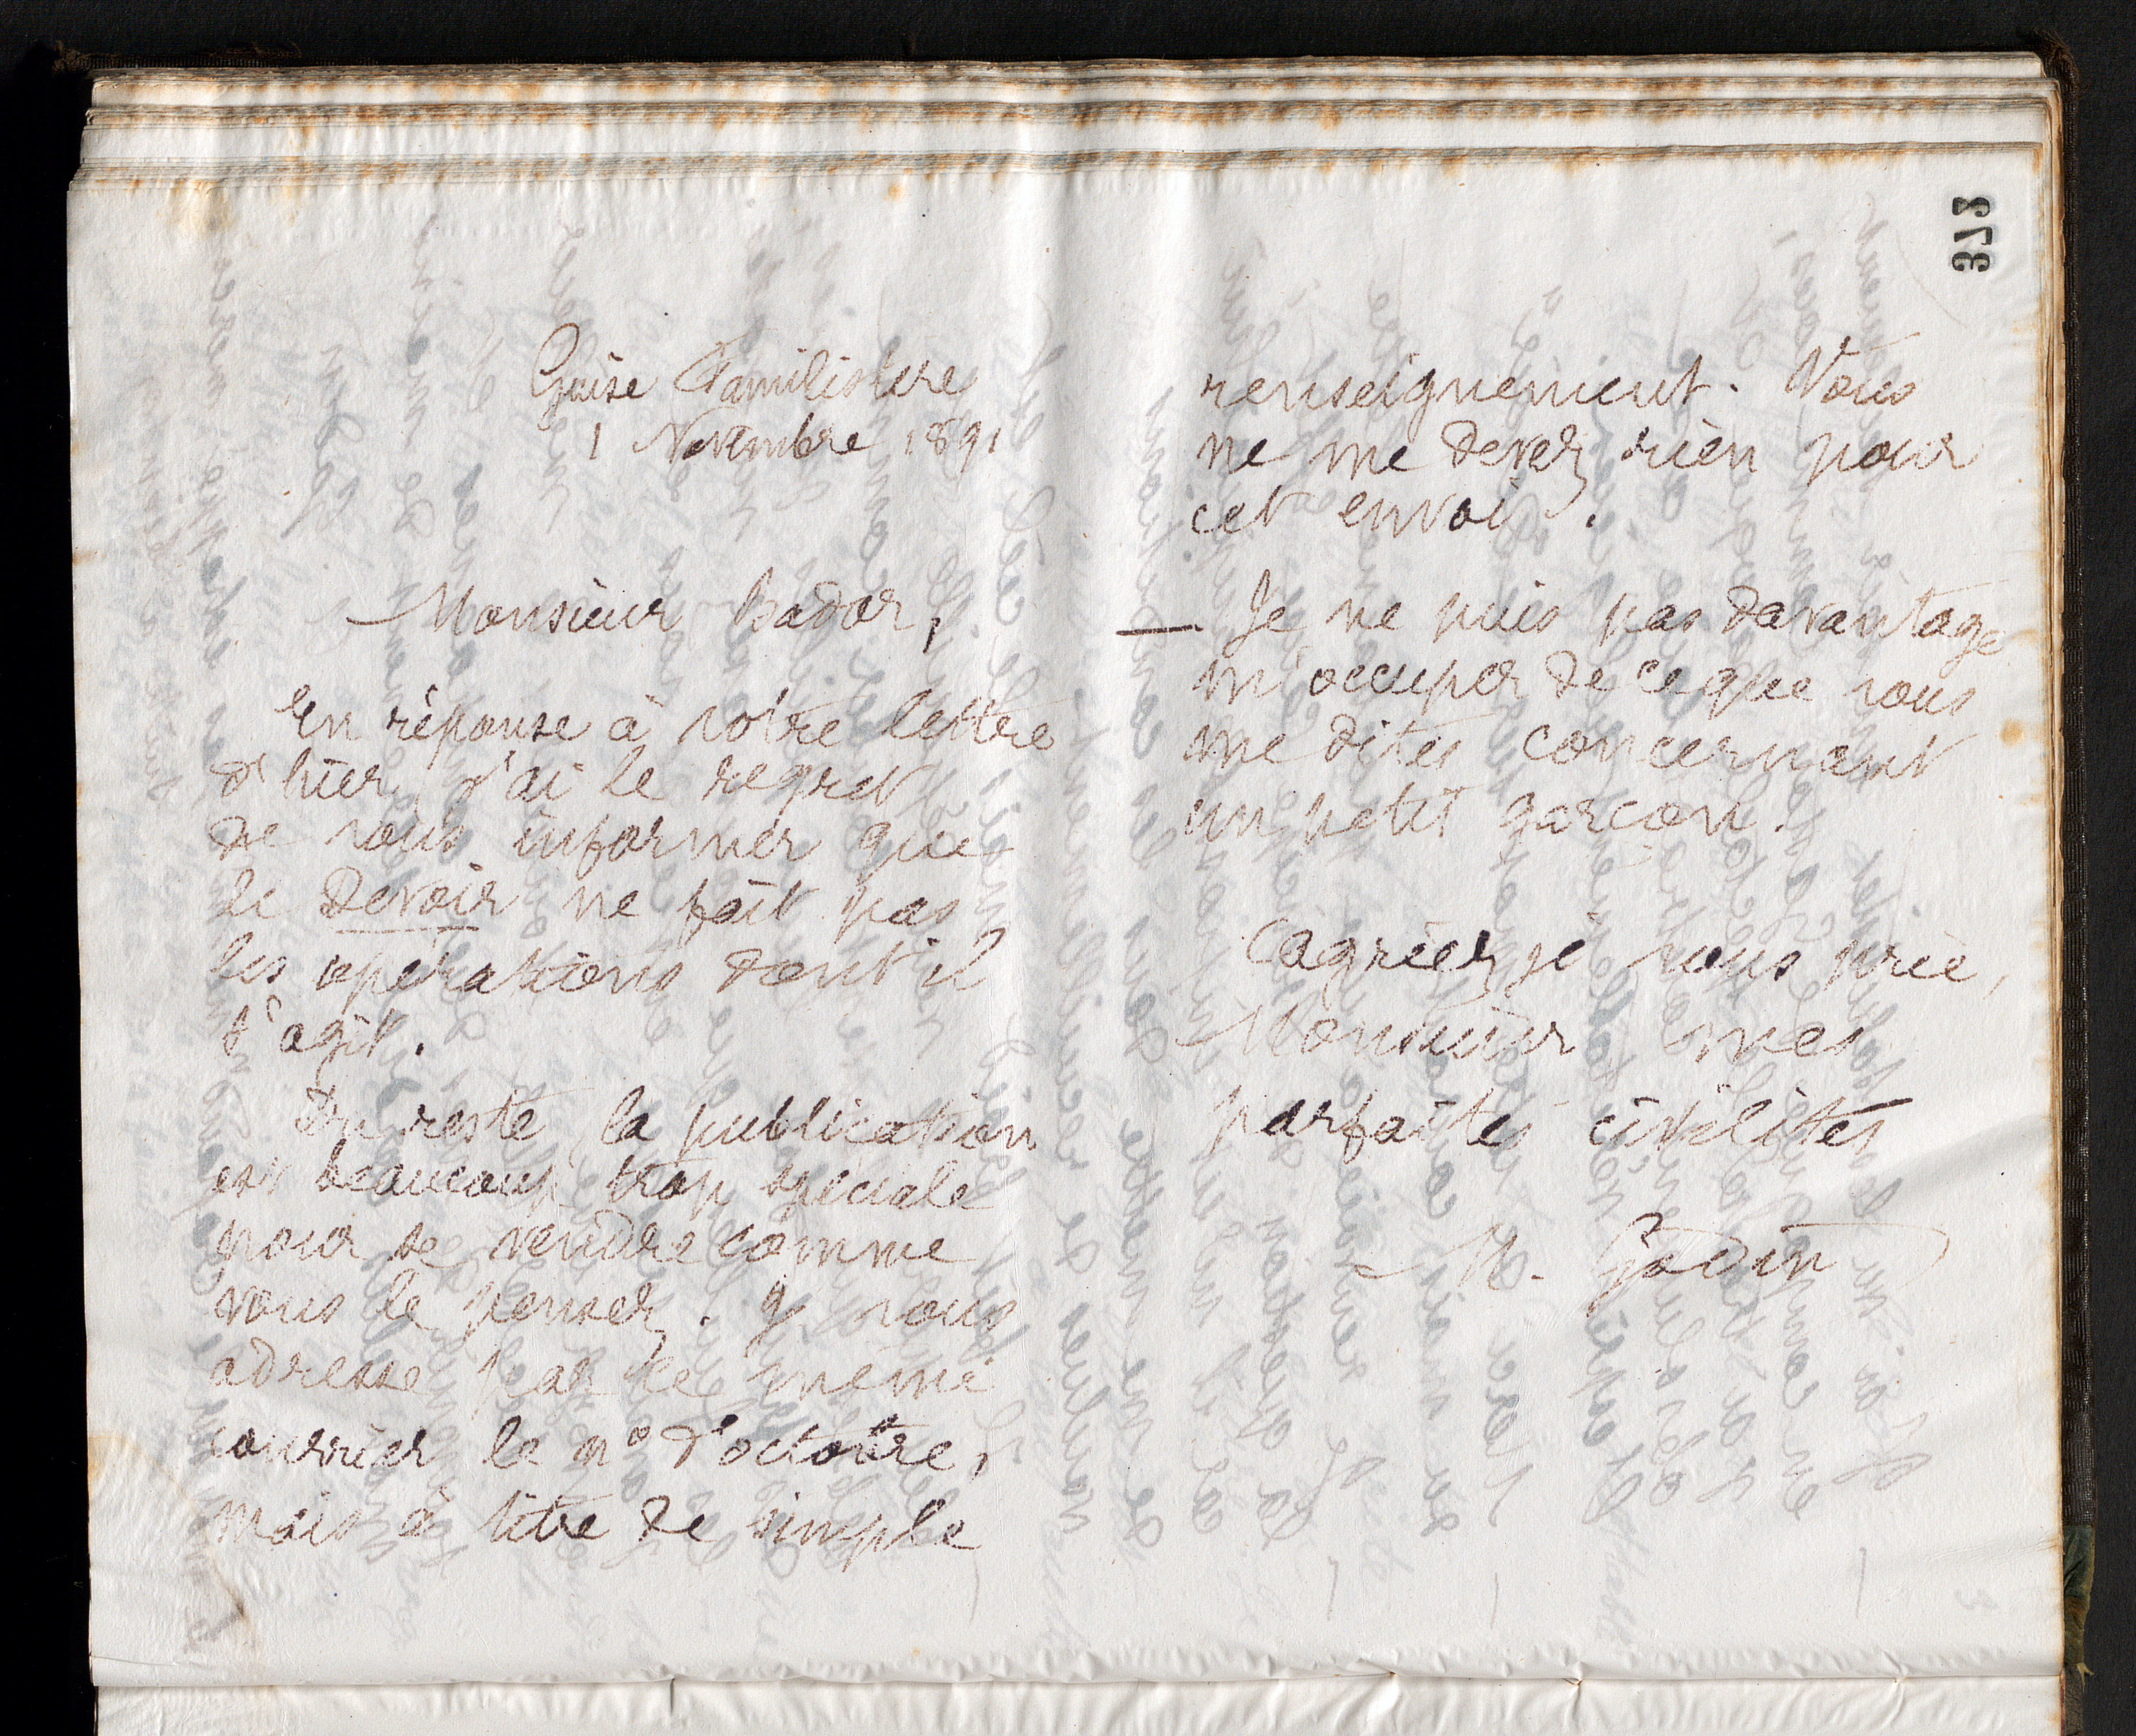 Guise Familistère
1 Novembre 1891
Monsieur Bador,
En réponse à votre lettre
d'hier, j'ai le regret
de vous informer que
le Devoir ne fait pas
les opérations dont il
s'agit.
Du reste, la publication
est beaucoup trop spéciale
pour se vendre comme
vous le pensez. Je vous
adresse par ce même
courrier le n° d'octobre,
mais à titre de simple
renseignement. Vous
ne me devez rien pour
cet envoi.
— Je ne puis pas davantage
m'occuper de ce que vous
me dites concernant
un petit garçon.
Agréez, je vous prie,
Monsieur mes
parfaites civilités
M. Godin